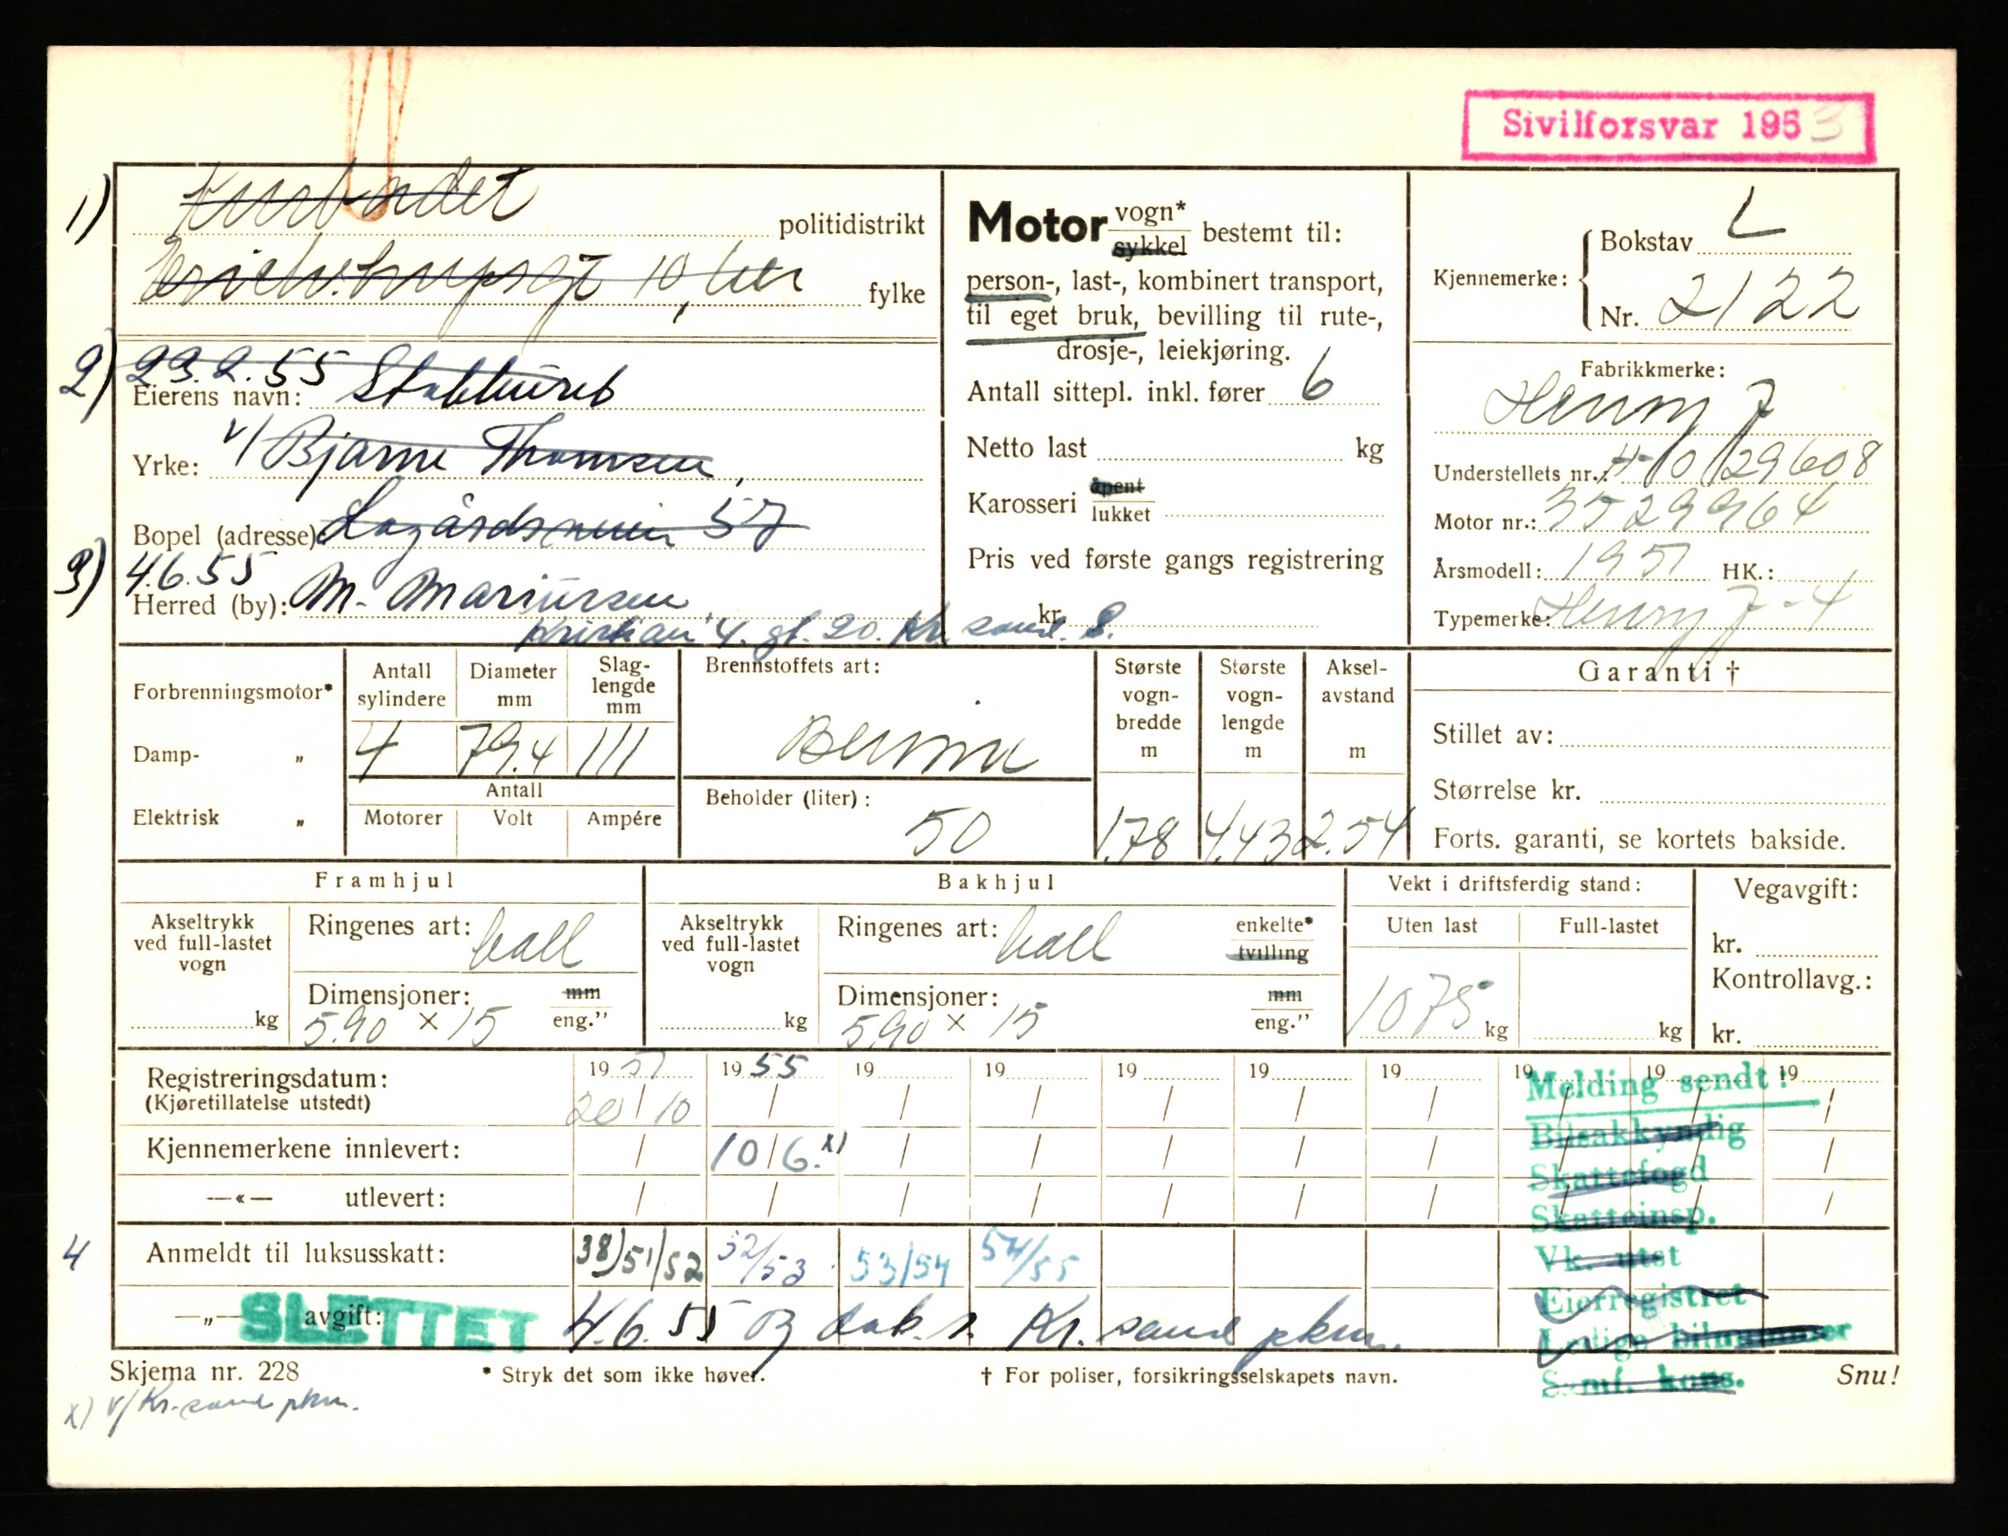 Sivilforsvar 1953
1)
politidistrikt
10, her
fylke
Motor vogn* sykkel bestemt til:
person-, last-, kombinert transport,
til eget bruk, bevilling til rute-,
drosje-, leiekjøring.
Antall sittepl. inkl. fører 6
Netto last kg
Karosseri åpent lukket
Pris ved første gangs registrering
kr.
Kjennemerke:
Bokstav L
Nr. 2122
2) 23.2.55
Eierens navn: Stabburet
Yrke: v/ Bjarne Thomsen,
Bopel (adresse) Lagårdsveien 57
3) 4.6.55
Herred (by): M. Mariussen
Kristian 4. gt. 20. Kr.sand. S.
Fabrikkmerke:
Henry J
Understellets nr.: 4-10/29608
Motor nr.: 3529964
Årsmodell: 1951 HK.:
Typemerke: Henry J-4
Forbrenningsmotor*
Damp- „
Elektrisk „
Antall sylindere
Diameter mm
Slag-lengde mm
4 79.4 111
Antall
Motorer Volt Ampére
Brennstoffets art:
Bensin
Beholder (liter):
50
Største vogn-bredde m
Største vogn-lengde m
Aksel-avstand m
1.78 4.43 2.54
Garanti †
Stillet av:
Størrelse kr.
Forts. garanti, se kortets bakside.
Framhjul
Akseltrykk ved full-lastet vogn
kg
Ringenes art: ball
Dimensjoner: mm
5.90 × 15 eng."
Bakhjul
Akseltrykk ved full-lastet vogn
kg
Ringenes art: ball enkelte* tvilling
Dimensjoner: mm
5.90 × 15 eng."
Vekt i driftsferdig stand:
Uten last Full-lastet
1075 kg kg
Vegavgift:
kr.
Kontrollavg.:
kr.
Registreringsdatum: 1951 1955 19 19 19 19 19 19 19 19
(Kjøretillatelse utstedt) 20/10 / / / / / / / / /
Kjennemerkene innlevert: / 10/6.x) / / / / / / /
—«— utlevert: / / / / / / / / / /
4 Anmeldt til luksusskatt: 38/51/52 52/53 53/54 54/55
—„— avgift:
SLETTET
4.6.55 Kr.sand pkm.
Melding sendt!
Bilsakkyndig
Skattefogd
Skatteinsp.
Vk. utst
Eierregistret
Ledige bilnummer
Samf. kons.
Skjema nr. 228
* Stryk det som ikke høver.
† For poliser, forsikringsselskapets navn.
Snu!
x) v/ Kr.sand pkm.